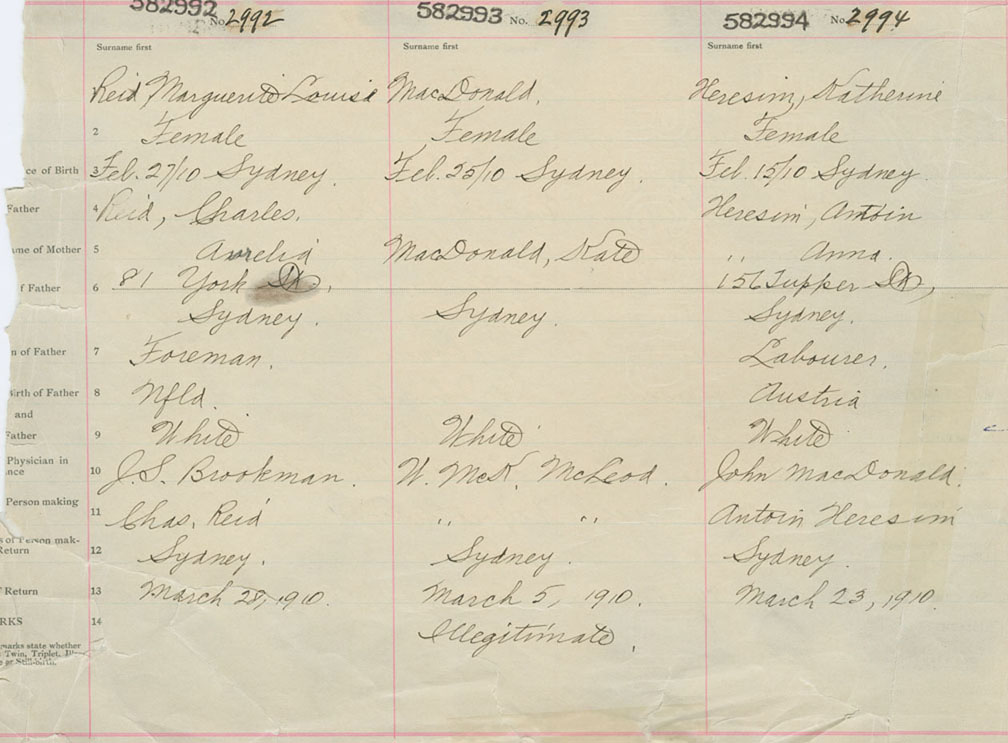 582992 No 2992 582993 No. 2993 582994 No 2994
Surname first Surname first Surname first
Reid Marguerite Louise MacDonald, Heresim, Katherine
2 Female Female Female
ce of Birth 3 Feb. 27/10 Sydney. Feb. 25/10 Sydney. Feb. 15/10 Sydney.
Father 4 Reid, Charles. Heresim, Antoin
me of Mother 5 Aurelia MacDonald, Kate ,, Anna.
f Father 6 81 York St., 156 Tupper St.,
Sydney. Sydney. Sydney.
n of Father 7 Foreman. Labourer.
irth of Father 8 Nfld. Austria
and
Father 9 White White White
Physician in
nce 10 J.S. Brookman. W. McK. McLeod. John MacDonald.
Person making
11 Chas. Reid ,, ,, Antoin Heresim
s of Person mak-
Return 12 Sydney. Sydney. Sydney.
Return 13 March 28, 1910. March 5, 1910. March 23, 1910.
RKS 14 Illegitimate.
marks state whether
Twin, Triplet, Il-
e or Still-birth.